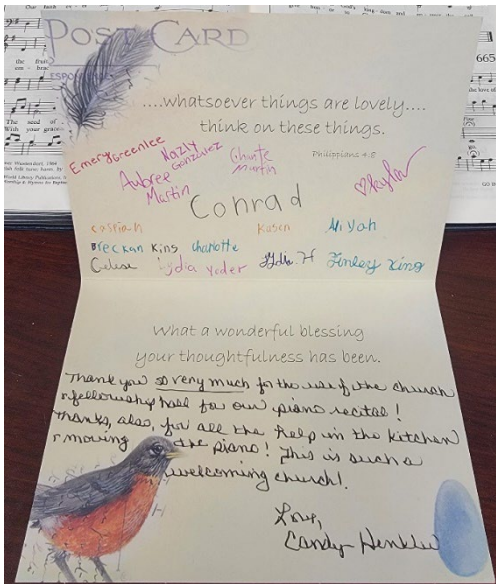 POST CARD
....whatsoever things are lovely....
think on these things.
Philippians 4:8
Emery Greenlee
Nazly Gonzalez
Chante Martin
Aubree Martin
Kaylor
Conrad
Caspian
Kasen
Aliyah
Breckan King
Charlotte
Celese
Lydia Yoder
Lydia H
Finley King
What a wonderful blessing
your thoughtfulness has been.
Thank you so very much for the use of the church
& fellowship hall for our piano recital!
Thanks, also, for all the help in the kitchen
& moving the piano! This is such a
welcoming church!
Love,
Candy Henkle
665